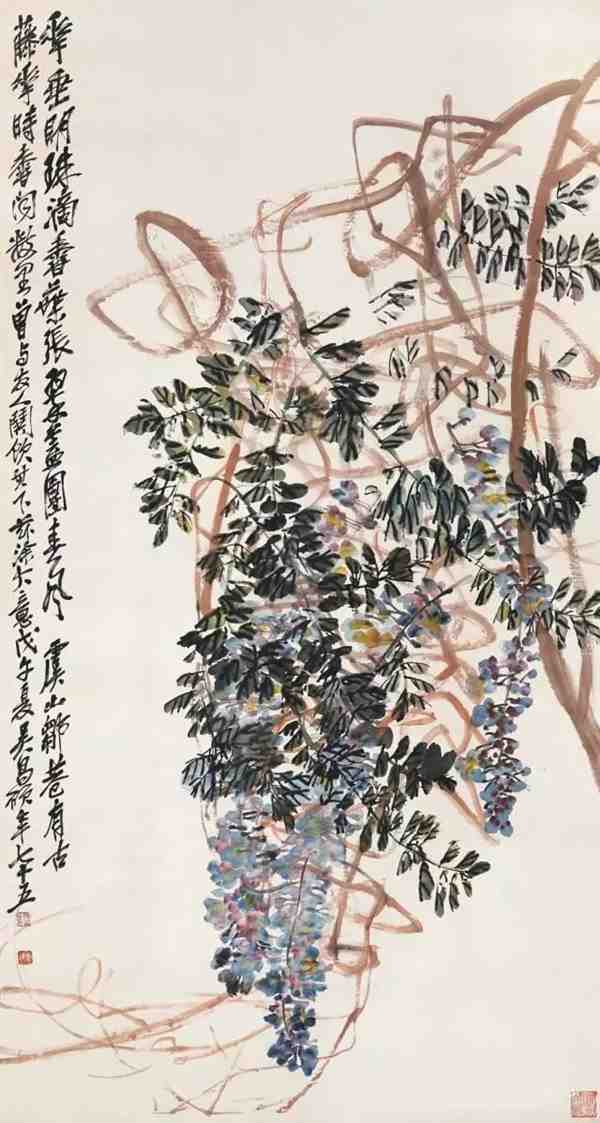 華垂明珠滴香葉張翠蓋團春風 虞山鄒巷有古
藤華時香聞數里曾與友人鬭飲其下茲涂大意戊午夏吳昌碩年七十五